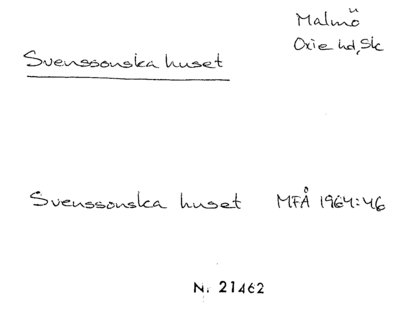 Malmö
Oxie hd, Sk
Svenssonska huset
Svenssonska huset MFÅ 1964:46
N. 21462